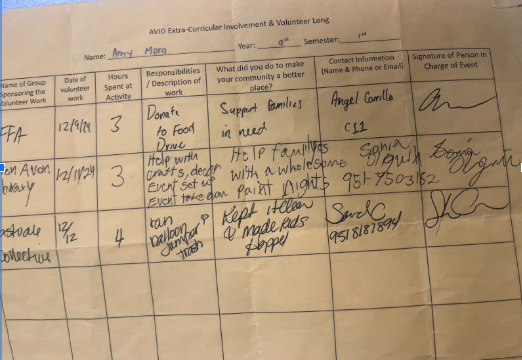 AVID Extra-Curricular Involvement & Volunteer Long
Name: Amy Mora Year: 9th Semester: 1st
Name of Group Sponsoring the Volunteer Work
Date of volunteer work
Hours Spent at Activity
Responsibilities / Description of work
What did you do to make your community a better place?
Contact Information (Name & Phone or Email)
Signature of Person in Charge of Event
FFA
12/9/24
3
Donate
to Food
Drive
Support families
in need
Angel
12/11/24
3
Help with
crafts,
Event set up
Event
Help families
with a wholesome
paint nights
Sonia
12/
12
4
ran
balloon
jumper &
trash
Kept it clean
& made kids
happy
9518187894
Collective